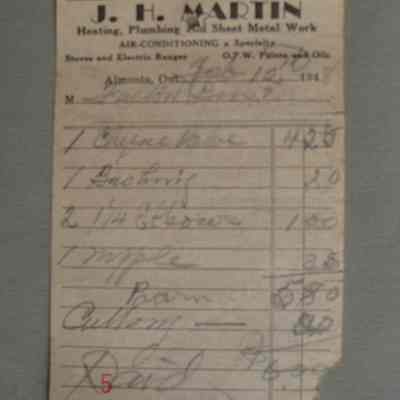 J. H. MARTIN
Heating, Plumbing and Sheet Metal Work
AIR-CONDITIONING a Specialty
Stoves and Electric Ranges O.P.W. Paints and Oils
Almonte, Ont. Feb 10 194
M
1 Valve 4 25
1 Bushing 20
2 1 1/4 Elbows 1 00
1 Nipple 35
5 80
Cutting — 20
6.00
Paid
5